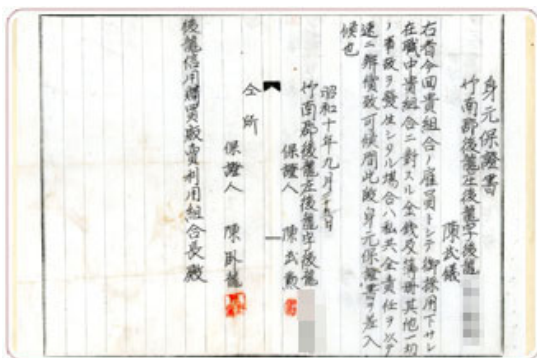 身元保證書
竹南郡後龍庄後龍字後龍
陳武儀
右者今回貴組合ノ雇員トシテ御採用下サレ
在職中貴組合ニ對スル金錢及簿冊其他一切
ノ事故ヲ發生シタル場合ハ私共全責任ヲ以テ
速ニ辨償致可候間此段身元保證書差入
候也
昭和十年九月 日
竹南郡後龍庄後龍字後龍
保證人 陳武勲
仝所
保證人 陳臥龍
後龍信用購買販賣利用組合長殿